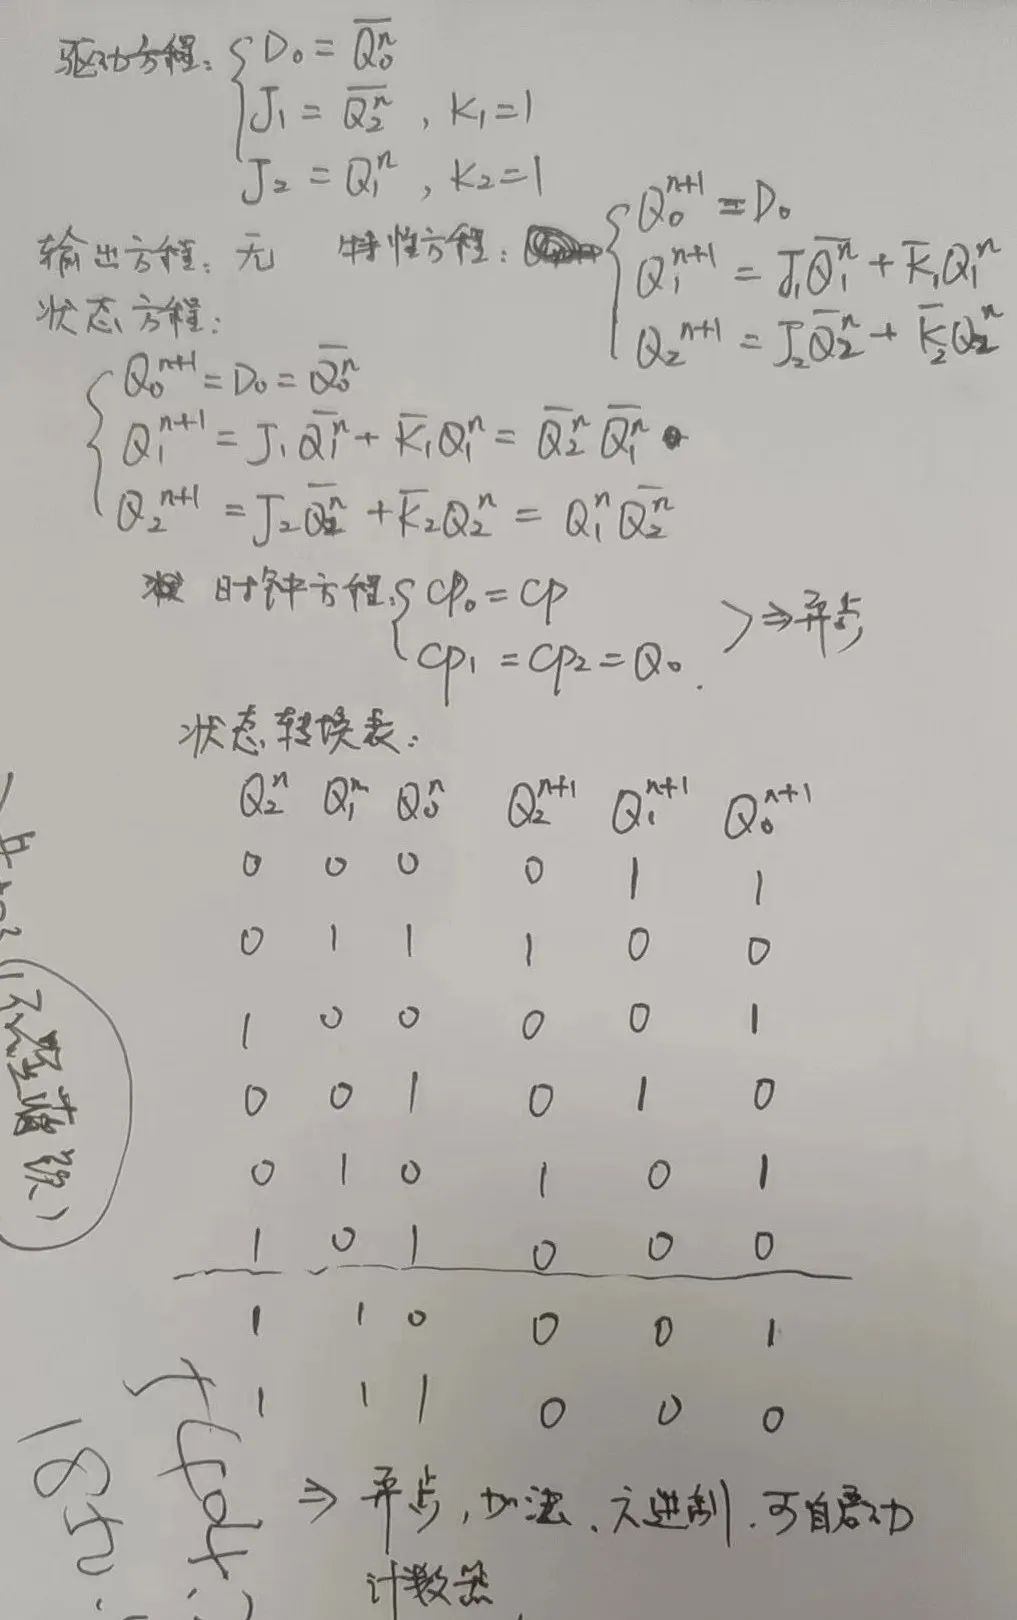 驱动方程: D₀ = \overline{Q₀ⁿ}
J₁ = \overline{Q₂ⁿ} , K₁=1
J₂ = Q₁ⁿ , K₂=1
输出方程: 无 特性方程: Q₀ⁿ⁺¹ = D₀
Q₁ⁿ⁺¹ = J₁\overline{Q₁ⁿ} + \overline{K₁}Q₁ⁿ
Q₂ⁿ⁺¹ = J₂\overline{Q₂ⁿ} + \overline{K₂}Q₂ⁿ
状态方程:
Q₀ⁿ⁺¹ = D₀ = \overline{Q₀ⁿ}
Q₁ⁿ⁺¹ = J₁\overline{Q₁ⁿ} + \overline{K₁}Q₁ⁿ = \overline{Q₂ⁿ} \overline{Q₁ⁿ}
Q₂ⁿ⁺¹ = J₂\overline{Q₂ⁿ} + \overline{K₂}Q₂ⁿ = Q₁ⁿ\overline{Q₂ⁿ}
时钟方程: CP₀ = CP
CP₁ = CP₂ = Q₀. ⇒异步
状态转换表:
Q₂ⁿ Q₁ⁿ Q₀ⁿ Q₂ⁿ⁺¹ Q₁ⁿ⁺¹ Q₀ⁿ⁺¹
0 0 0 0 1 1
0 1 1 1 0 0
1 0 0 0 0 1
0 0 1 0 1 0
0 1 0 1 0 1
1 0 1 0 0 0
1 1 0 0 0 1
1 1 1 0 0 0
⇒ 异步, 加法、六进制. 可自启动
计数器